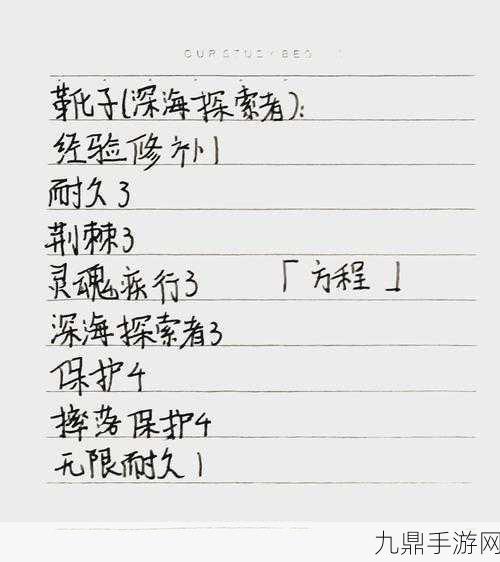 靴子(深海探索者):
经验修补1
耐久3
荆棘3
灵魂疾行3 「方程」
深海探索者3
保护4
摔落保护4
无限耐久1
九鼎手游网